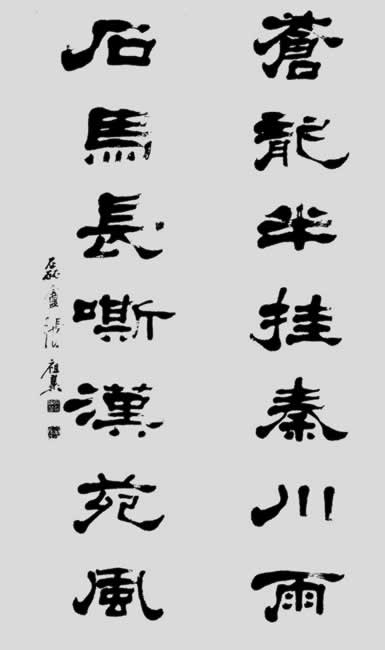 蒼龍半挂秦川雨
石馬長嘶漢苑風